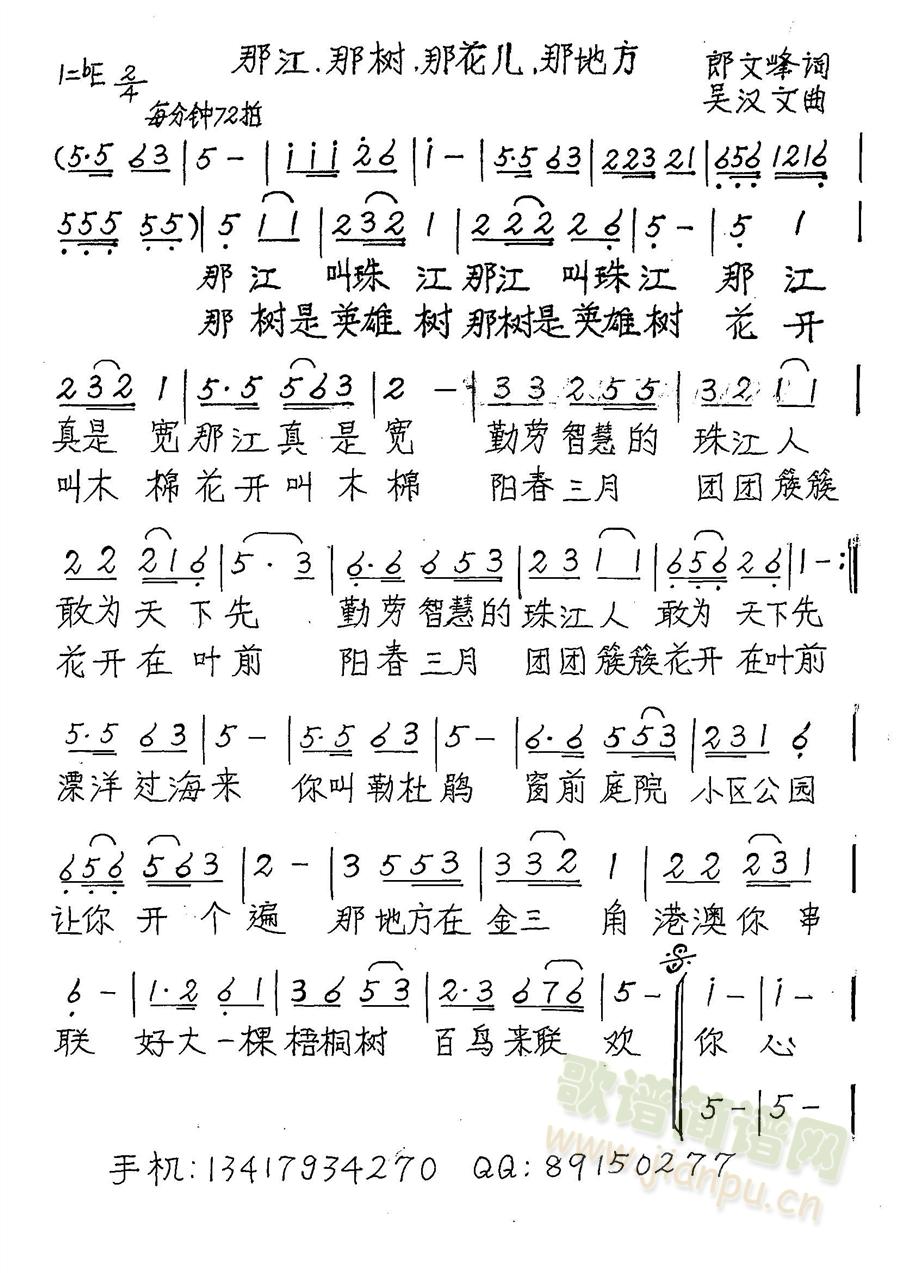 那江、那树、那花儿、那地方
郎文峰词
1=bE 2/4
吴汉文曲
每分钟72拍
(5·5 63|5-|i i i 2 6|i-|5·5 63|223 21|656 1216|
555 55)|5 11|232 1|2222 26|5-|5 1|
那江 叫珠 江那江 叫珠江 那 江
那树是英雄树那树是英雄树 花 开
232 1|5·5 563|2 -|33 255|32 11|
真是 宽那江真是宽 勤劳智慧的 珠江人
叫木棉花开叫木棉 阳春三月 团团簇簇
22 216|5·3|6·6 653|23 11|656 26|1-:||
敢为天下先 勤劳智慧的珠江人 敢为 天下先
花开在叶前 阳春三月 团团簇簇花开在叶前
5·5 63|5-|5·5 63|5-|6·6 553|231 6|
漂洋过海来 你叫勒杜鹃 窗前庭院 小区公园
656 563|2-|3 553|332 1|22 231|
让你开个遍 那地方在金三 角 港澳你串
6-|1·2 61|36 53|2·3 676|5-|i-|i-|
联 好大一棵梧桐树 百鸟来联 欢 你 心
5-|5-|
手机:13417934270 QQ:89150277
歌谱简谱网
www.jianpu.cn